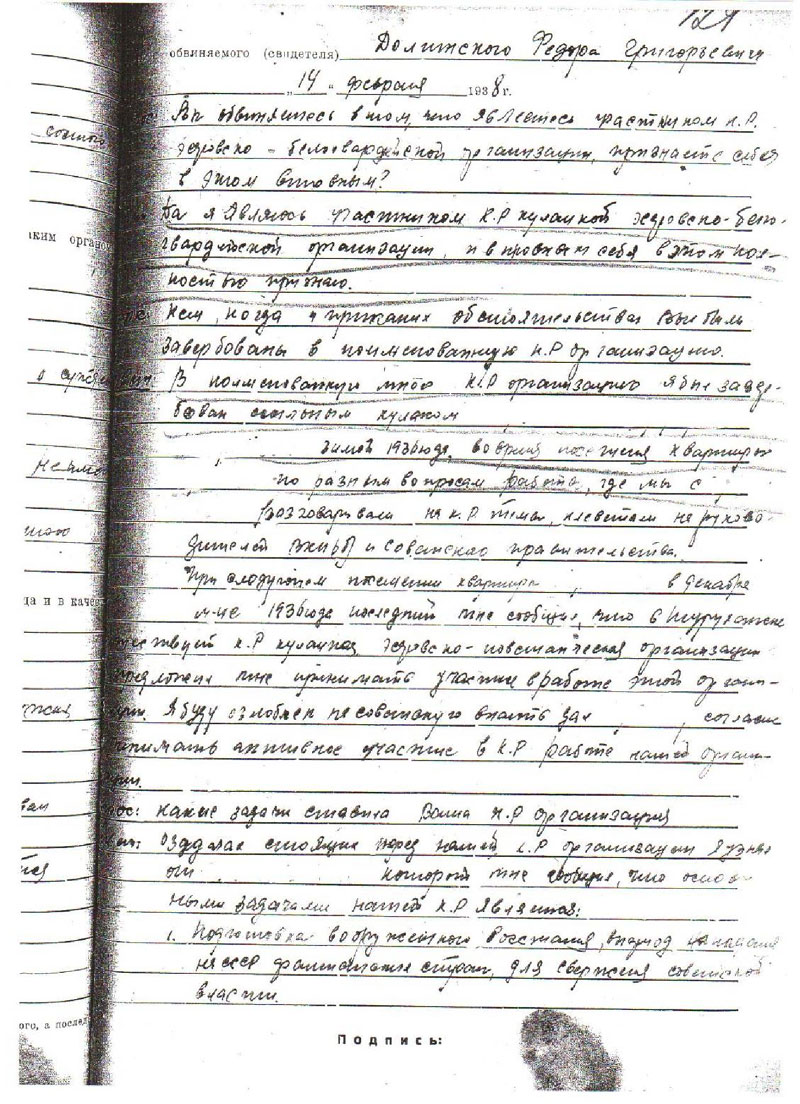 121
обвиняемого (свидетеля) Долинского Федора Григорьевича
„14" февраля 1938 г.
Вы обвиняетесь в том, что являетесь участником к.р.
эсеровско-белогвардейской организации, признаете себя
в этом виновным?
Да я являюсь участником к.р кулацкой эсеровско-бело-
гвардейской организации, и виновным себя в этом пол-
ностью признаю.
Кем, когда и при каких обстоятельствах Вы были
завербованы в поименованную к.р организацию.
В поименованную мною к.р организацию я был завер-
бован ссыльным кулаком
зимой 1936 года, во время посещения квартиры
по разным вопросам работы, где мы с
разговаривали на к.р темы, клеветали на руково-
дителей ВКП(б) и советского правительства.
При следующем посещении квартиры, в декабре
м-це 1936 года последний мне сообщил, что в Туруханске
к.р кулацкая, эсеровско-повстанческая организация
мне принимать участие в работе этой орган-
Я буду озлоблен на советскую власть дал, согласие
активное участие в к.р работе нашей орган-
какие задачи ставила Ваша к.р организация
О задачах стоящих перед нашей к.р организации я узнал
от который мне сообщил, что основ-
ными задачами нашей к.р является:
1. Подготовка вооруженного восстания, в период нападения
на СССР фашистских стран, для свержения советской
власти.
Подпись: